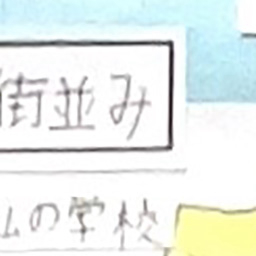 街並み
ムの学校